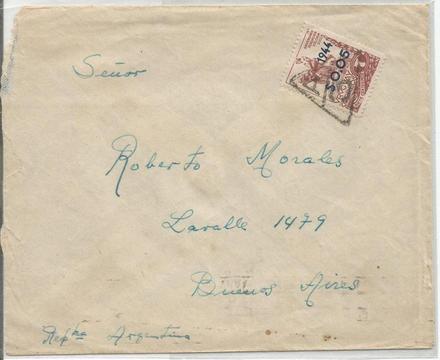 Señor
1944
$005
Roberto Morales
Lavalle 1479
Buenos Aires
Repca Argentina